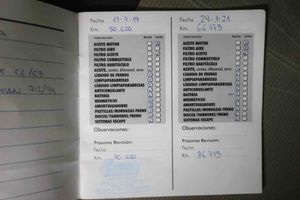 C2/C3
712/94
Fecha 17-7-19
Km. 50.620
Intervenciones Revisión Cambio
ACEITE MOTOR
FILTRO AIRE
FILTRO ACEITE
FILTRO COMBUSTIBLE
FILTRO HABITÁCULO
ACEITE, cambio, diferencial, servo
LÍQUIDO DE FRENOS
LIMPIAPARABRISAS
LÍQUIDO LIMPIAPARABRISAS
ANTICONGELANTE
BATERÍA
NEUMÁTICOS
AMORTIGUADORES
PASTILLAS/MORDAZAS FRENO
DISCOS/TAMBORES FRENO
SISTEMAS ESCAPE
Observaciones:
Próxima Revisión:
Fecha
Km. 70.620
Fecha 29-1-21
Km. 66.775
Intervenciones Revisión Cambio
ACEITE MOTOR
FILTRO AIRE
FILTRO ACEITE
FILTRO COMBUSTIBLE
FILTRO HABITÁCULO
ACEITE, cambio, diferencial, servo
LÍQUIDO DE FRENOS
LIMPIAPARABRISAS
LÍQUIDO LIMPIAPARABRISAS
ANTICONGELANTE
BATERÍA
NEUMÁTICOS
AMORTIGUADORES
PASTILLAS/MORDAZAS FRENO
DISCOS/TAMBORES FRENO
SISTEMAS ESCAPE
Observaciones:
Próxima Revisión:
Fecha
Km. 86.775